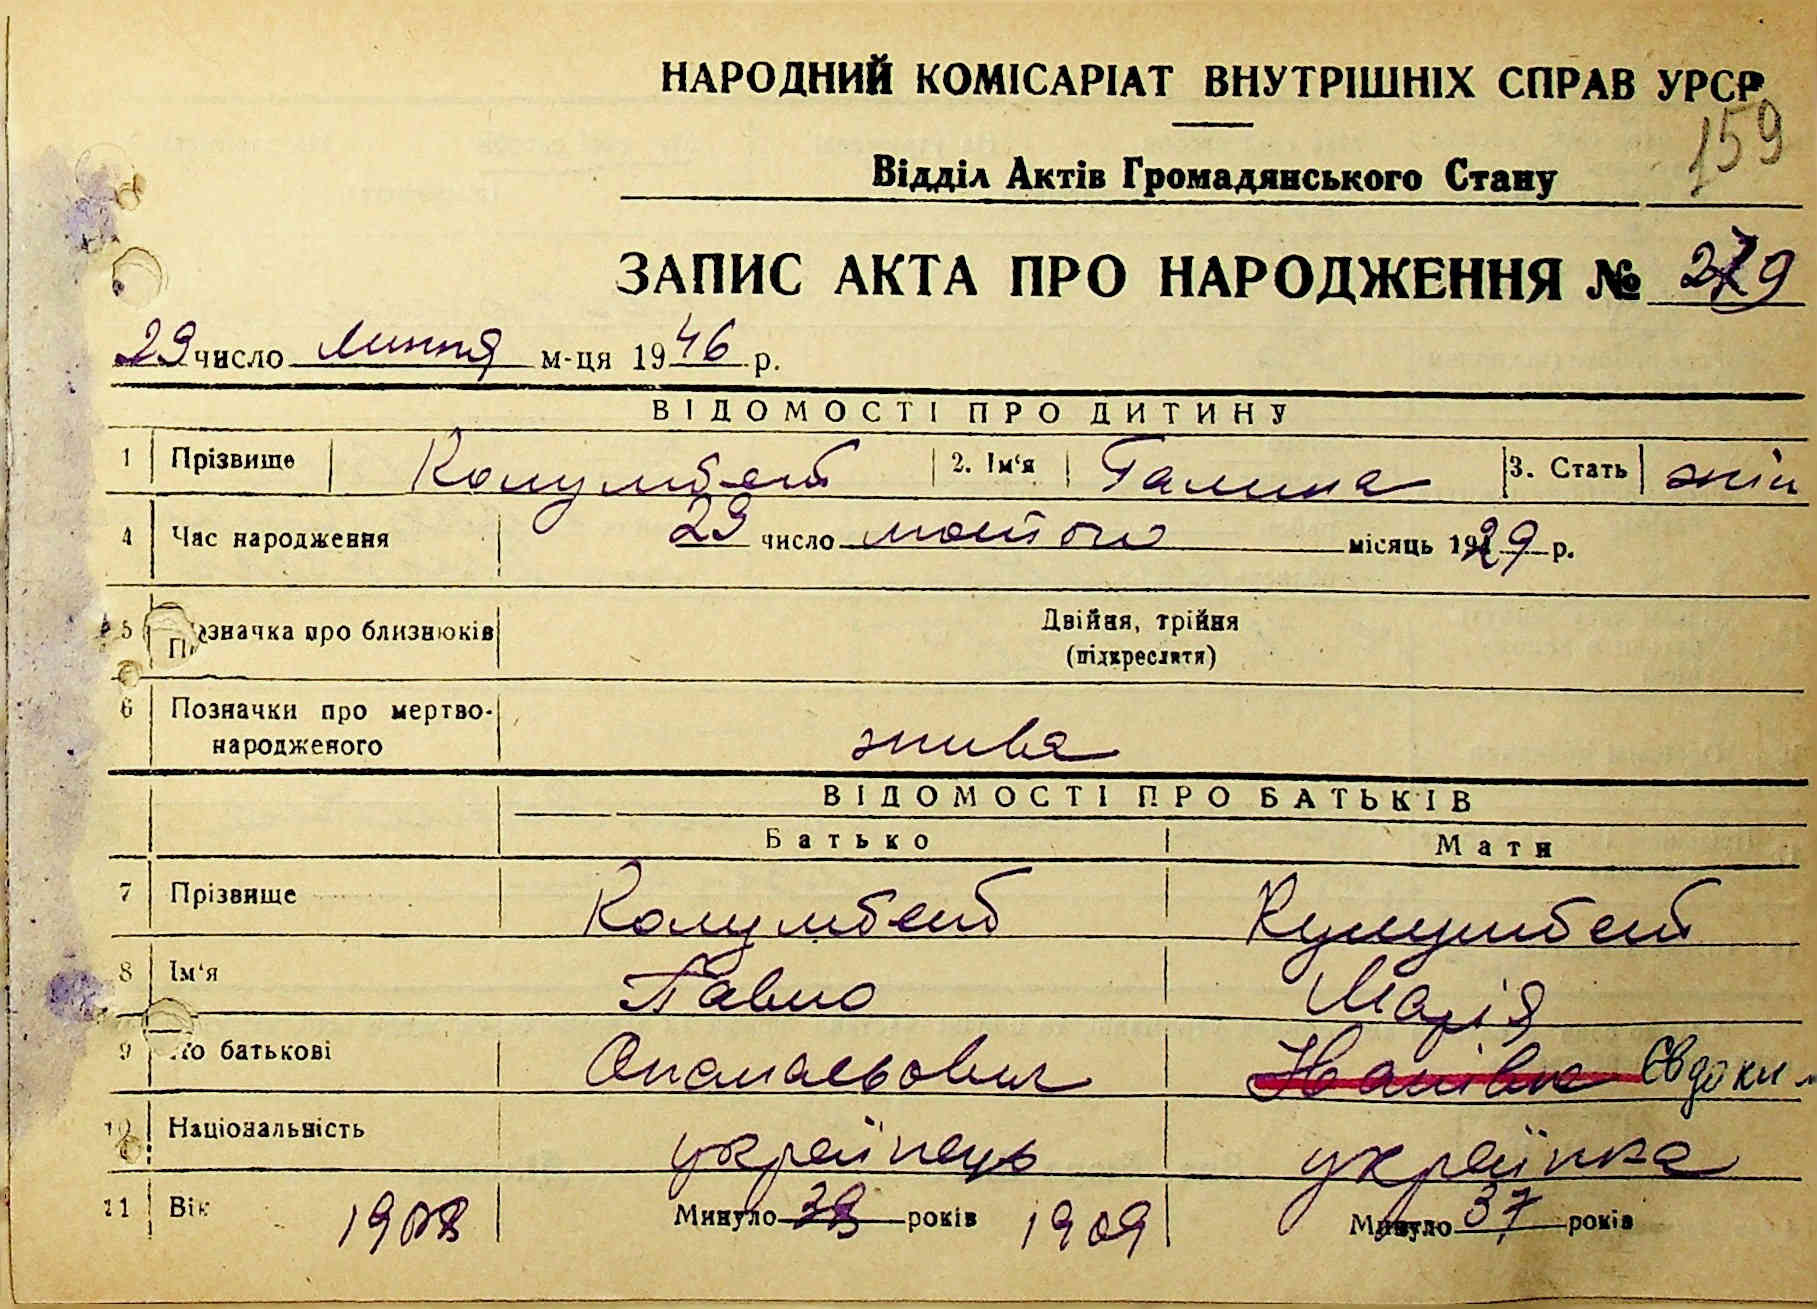 НАРОДНИЙ КОМІСАРІАТ ВНУТРІШНІХ СПРАВ УРСР
159
Відділ Актів Громадянського Стану
ЗАПИС АКТА ПРО НАРОДЖЕННЯ № 279
29 число липня м-ця 1946 р.
ВІДОМОСТІ ПРО ДИТИНУ
1 Прізвище Колумбет 2. Ім'я Галина 3. Стать жін
4 Час народження 29 число лютого місяць 1929 р.
5 Позначка про близнюків Двійня, трійня
(підкреслити)
6 Позначки про мертво-
народженого жива
ВІДОМОСТІ ПРО БАТЬКІВ
Батько Мати
7 Прізвище Колумбет Кулумбет
8 Ім'я Павло Марія
9 По батькові Опанасович Іванівна Євдоким
10 Національність українець українка
11 Вік 1908 Минуло 38 років 1909 Минуло 37 років